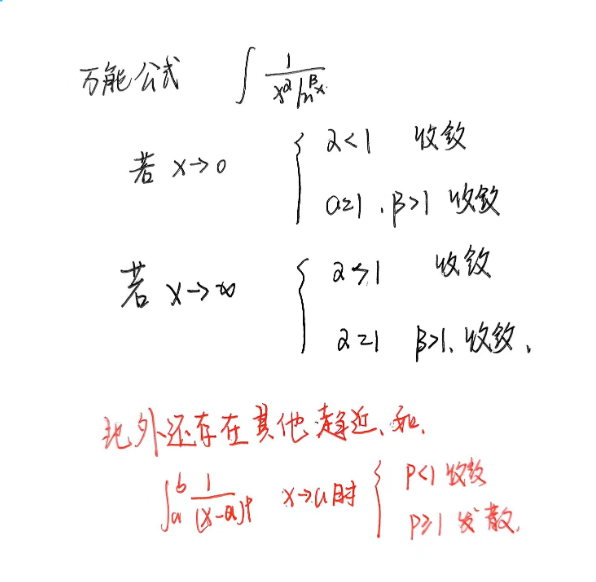 万能公式 ∫ 1/(x^α ln^β x)
若 x→0 { α<1 收敛
α=1, β>1 收敛
若 x→∞ { α>1 收敛
α=1 β>1, 收敛,
此外还存在其他趋近、如,
∫_a^b 1/(x-a)^p x→a时 { p<1 收敛
p≥1 发散,